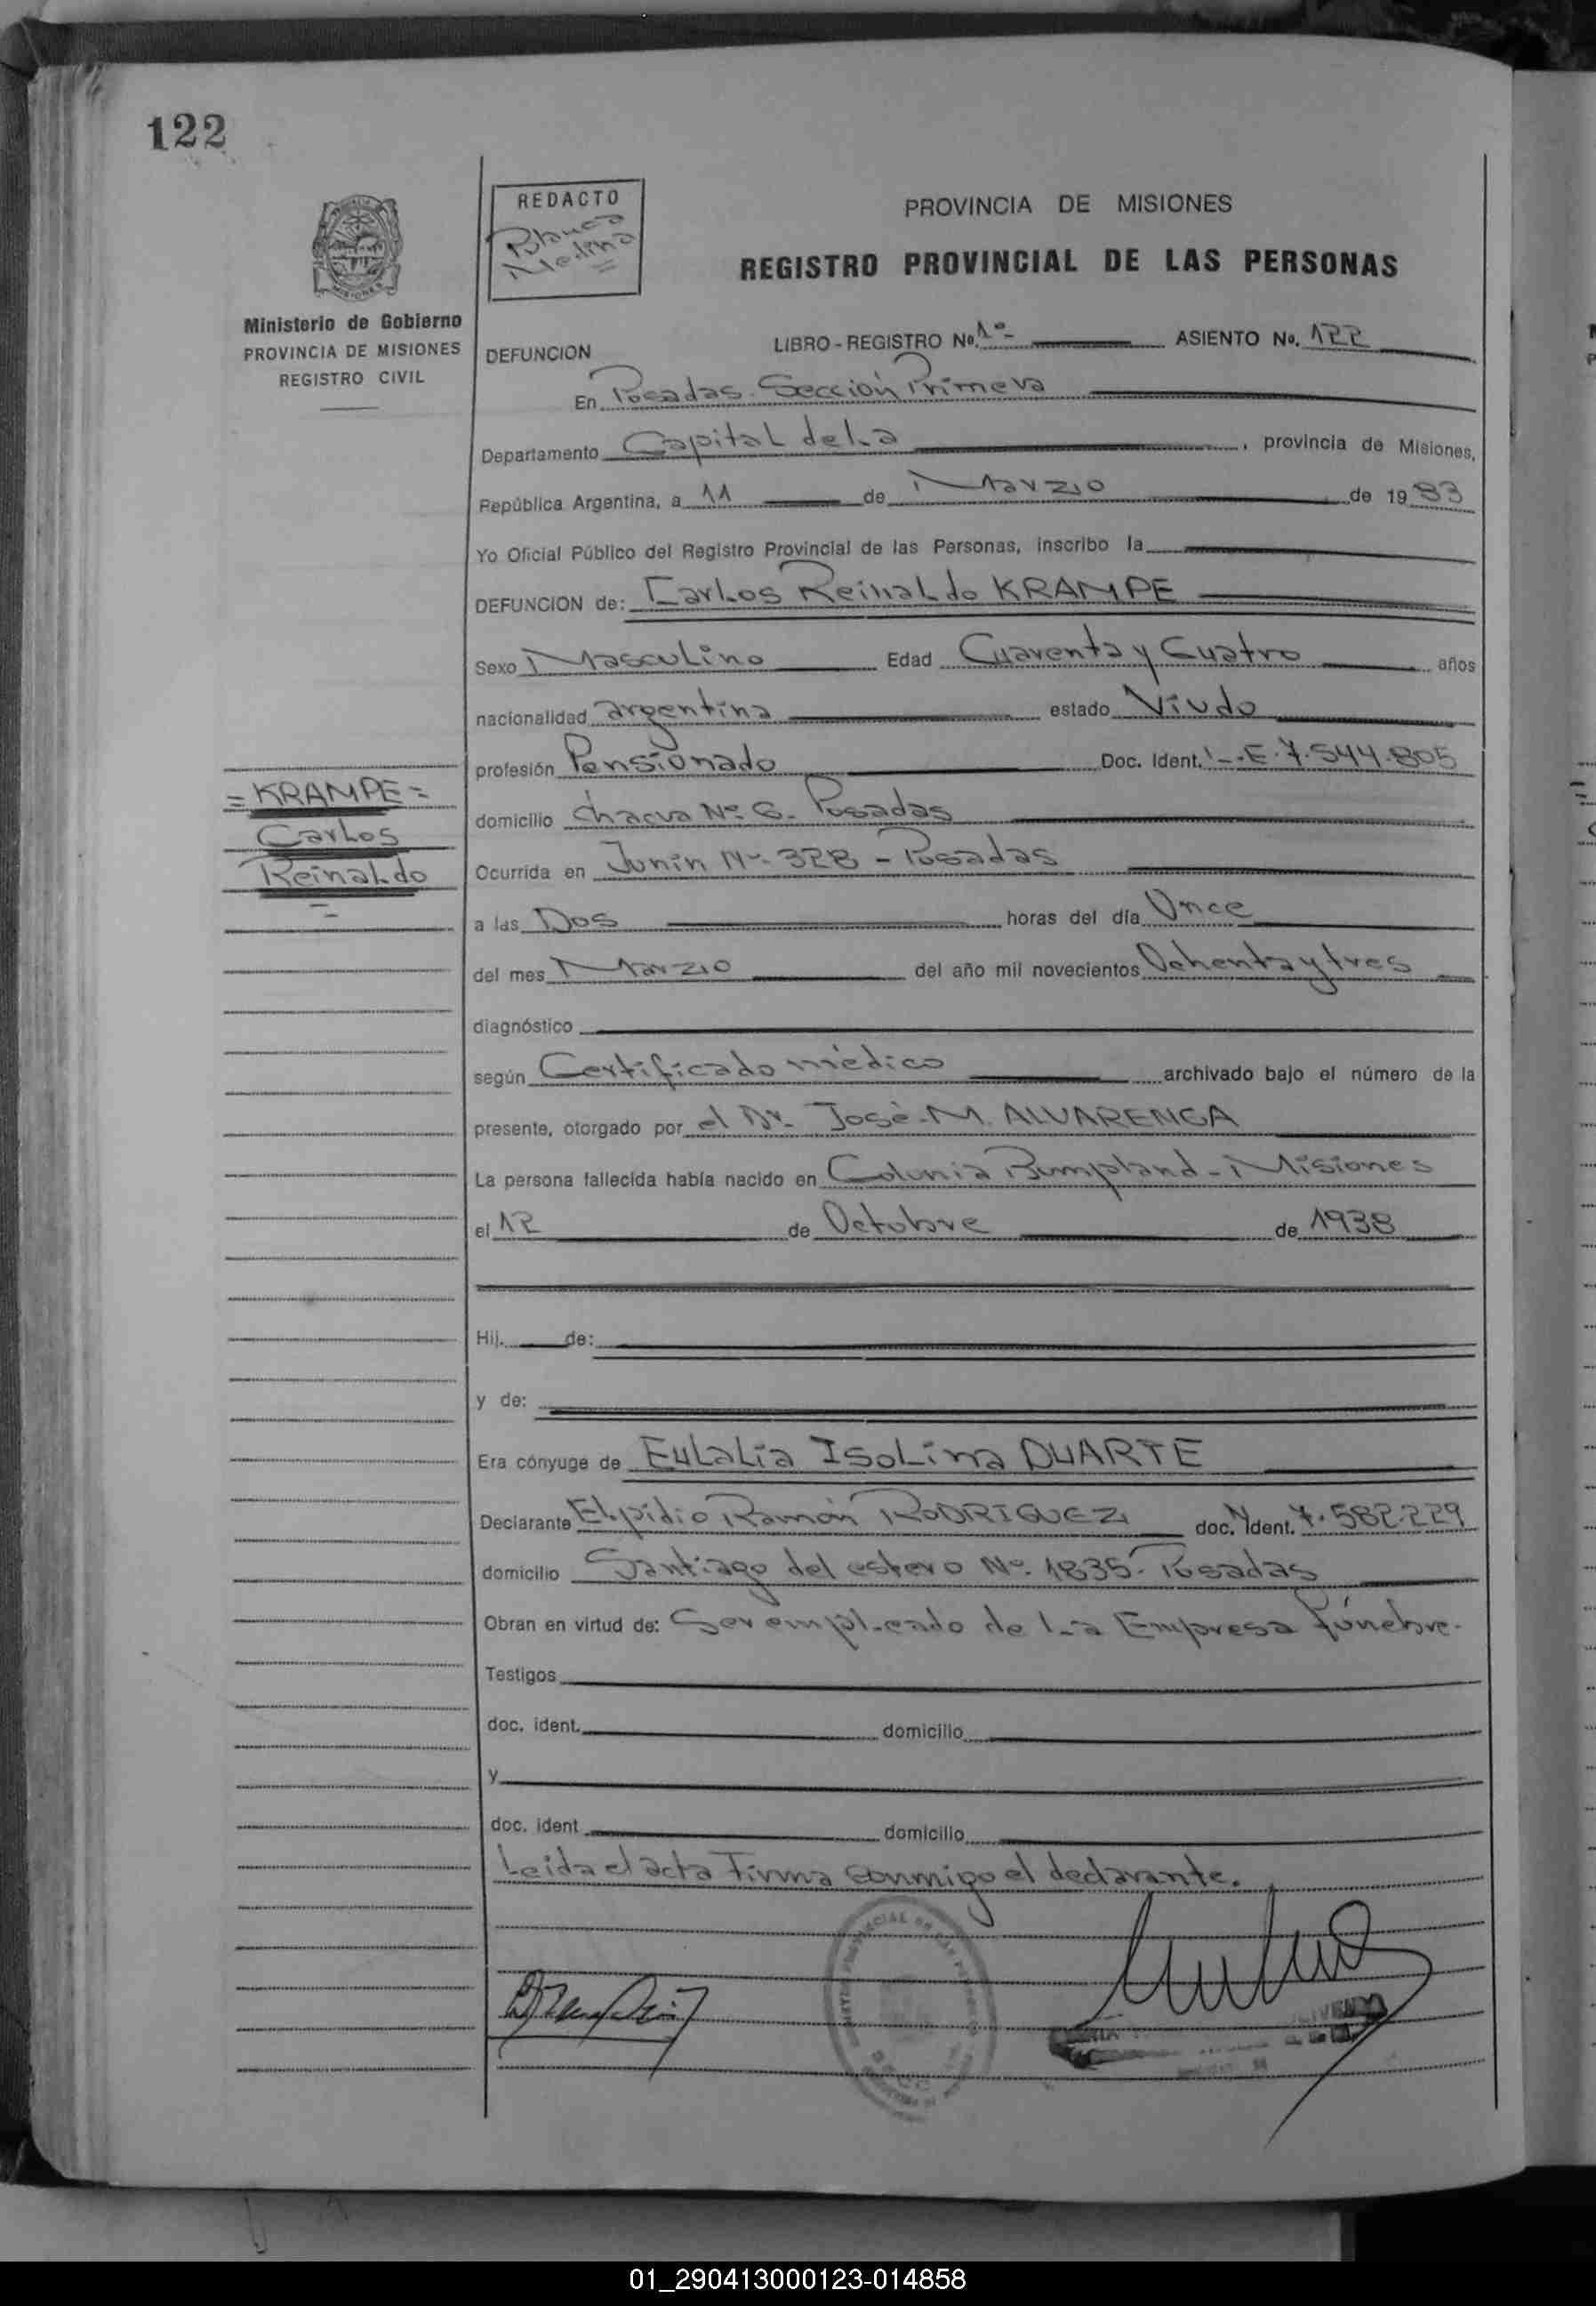 122
REDACTO
Blanca
Medina
PROVINCIA DE MISIONES
REGISTRO PROVINCIAL DE LAS PERSONAS
MISIONES
Ministerio de Gobierno
PROVINCIA DE MISIONES
REGISTRO CIVIL
DEFUNCION LIBRO - REGISTRO No. 1º- ASIENTO No. 122
En Posadas. Sección Primera
Departamento Capital de La, provincia de Misiones,
República Argentina, a 11 de Marzo de 1983
Yo Oficial Público del Registro Provincial de las Personas, inscribo la
DEFUNCION de: Carlos Reinaldo KRAMPE
Sexo Masculino Edad Cuarenta y Cuatro años
nacionalidad argentina estado Viudo
profesión Pensionado Doc. Ident. L.E. 7.544.805
domicilio chacra Nº 6. Posadas
Ocurrida en Junín Nº 328 - Posadas
a las Dos horas del día Once
del mes Marzo del año mil novecientos Ochenta y tres
diagnóstico
según Certificado médico archivado bajo el número de la
presente, otorgado por el Dr. José M. ALVARENGA
La persona fallecida había nacido en Colonia Bompland - Misiones
el 12 de Octubre de 1938
Hij. de:
y de:
Era cónyuge de Eulalia Isolina DUARTE
Declarante Elpidio Ramón RODRIGUEZ doc. Ident. 7.582.229
domicilio Santiago del estero Nº 1835. Posadas
Obran en virtud de: Ser empleado de La Empresa fúnebre.
Testigos
doc. ident. domicilio
y
doc. ident domicilio
Leida el acta Firma conmigo el declarante.
= KRAMPE =
Carlos
Reinaldo
01_290413000123-014858